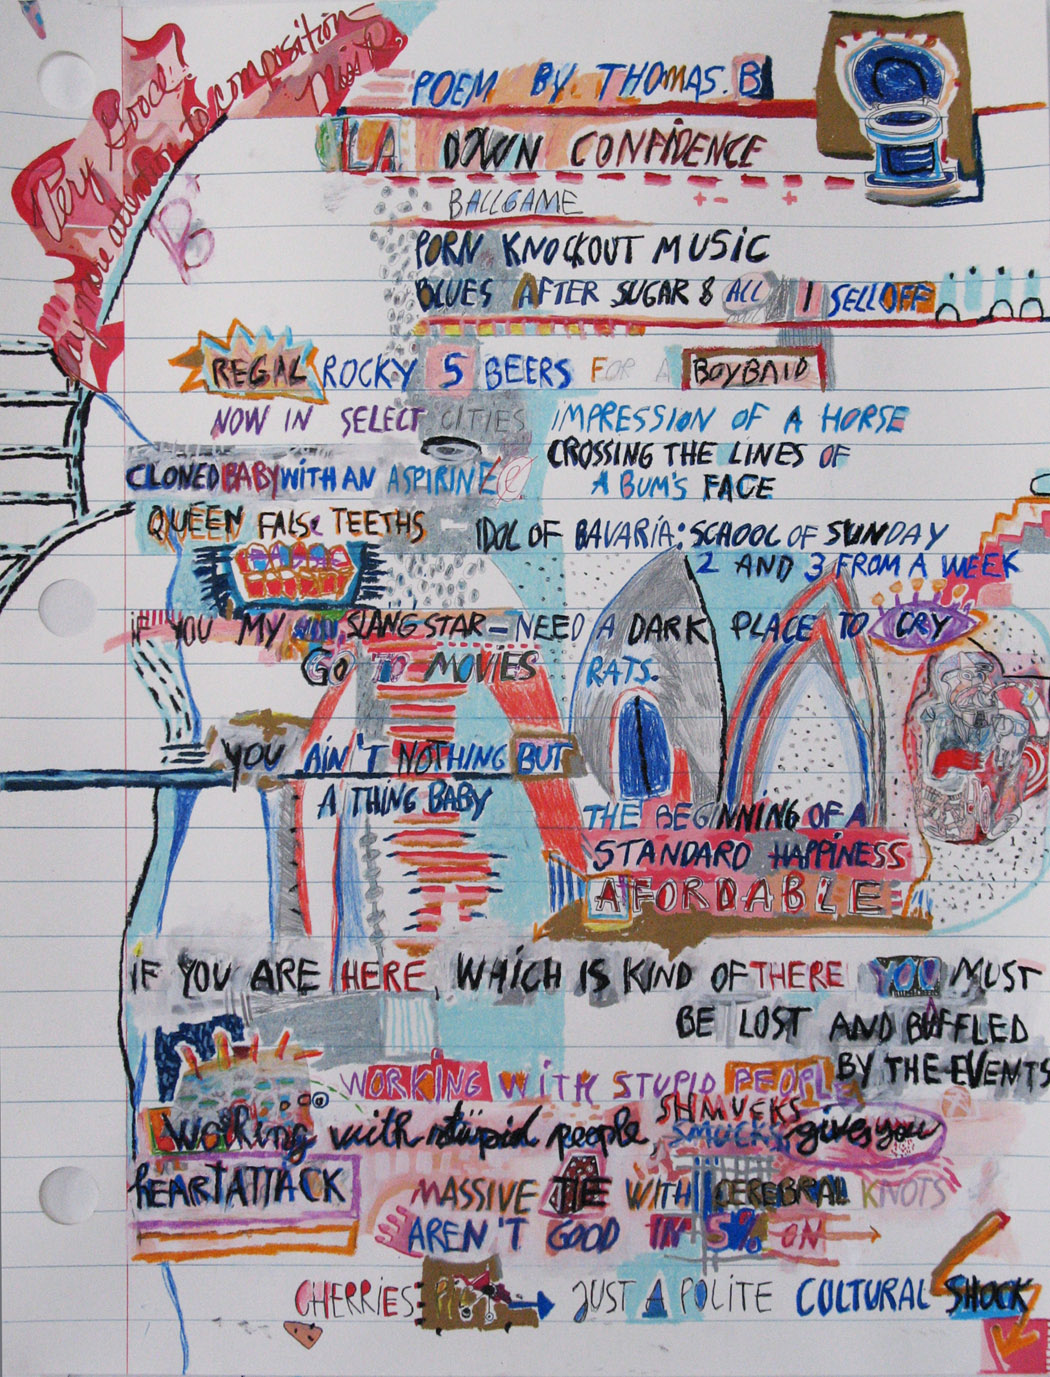 Very Good!
Pay more attention to composition
Miss P.
POEM BY THOMAS. B
LA DOWN CONFIDENCE
BALLGAME
PORN KNOCKOUT MUSIC
BLUES AFTER SUGAR & ALL I SELL OFF
REGAL ROCKY 5 BEERS FOR A BOYBAID
NOW IN SELECT CITIES
IMPRESSION OF A HORSE
CROSSING THE LINES OF
A BUM'S FACE
CLONED BABY WITH AN ASPIRINE
QUEEN FALSE TEETHS
IDOL OF BAVARIA: SCHOOL OF SUNDAY
2 AND 3 FROM A WEEK
IF YOU MY SLANG STAR - NEED A DARK PLACE TO CRY
GO TO MOVIES
RATS.
YOU AIN'T NOTHING BUT
A THING BABY
THE BEGINNING OF A
STANDARD HAPPINESS
AFORDABLE
IF YOU ARE HERE, WHICH IS KIND OF THERE YOU MUST
BE LOST AND BUFFLED
BY THE EVENTS
WORKING WITH STUPID PEOPLE
SHMUCKS
Working with stupid people, SMUCKS, give you
HEARTATTACK
MASSIVE TIE WITH CEREBRAL KNOTS
AREN'T GOOD IN 5% ON
CHERRIES JUST A POLITE CULTURAL SHOCK